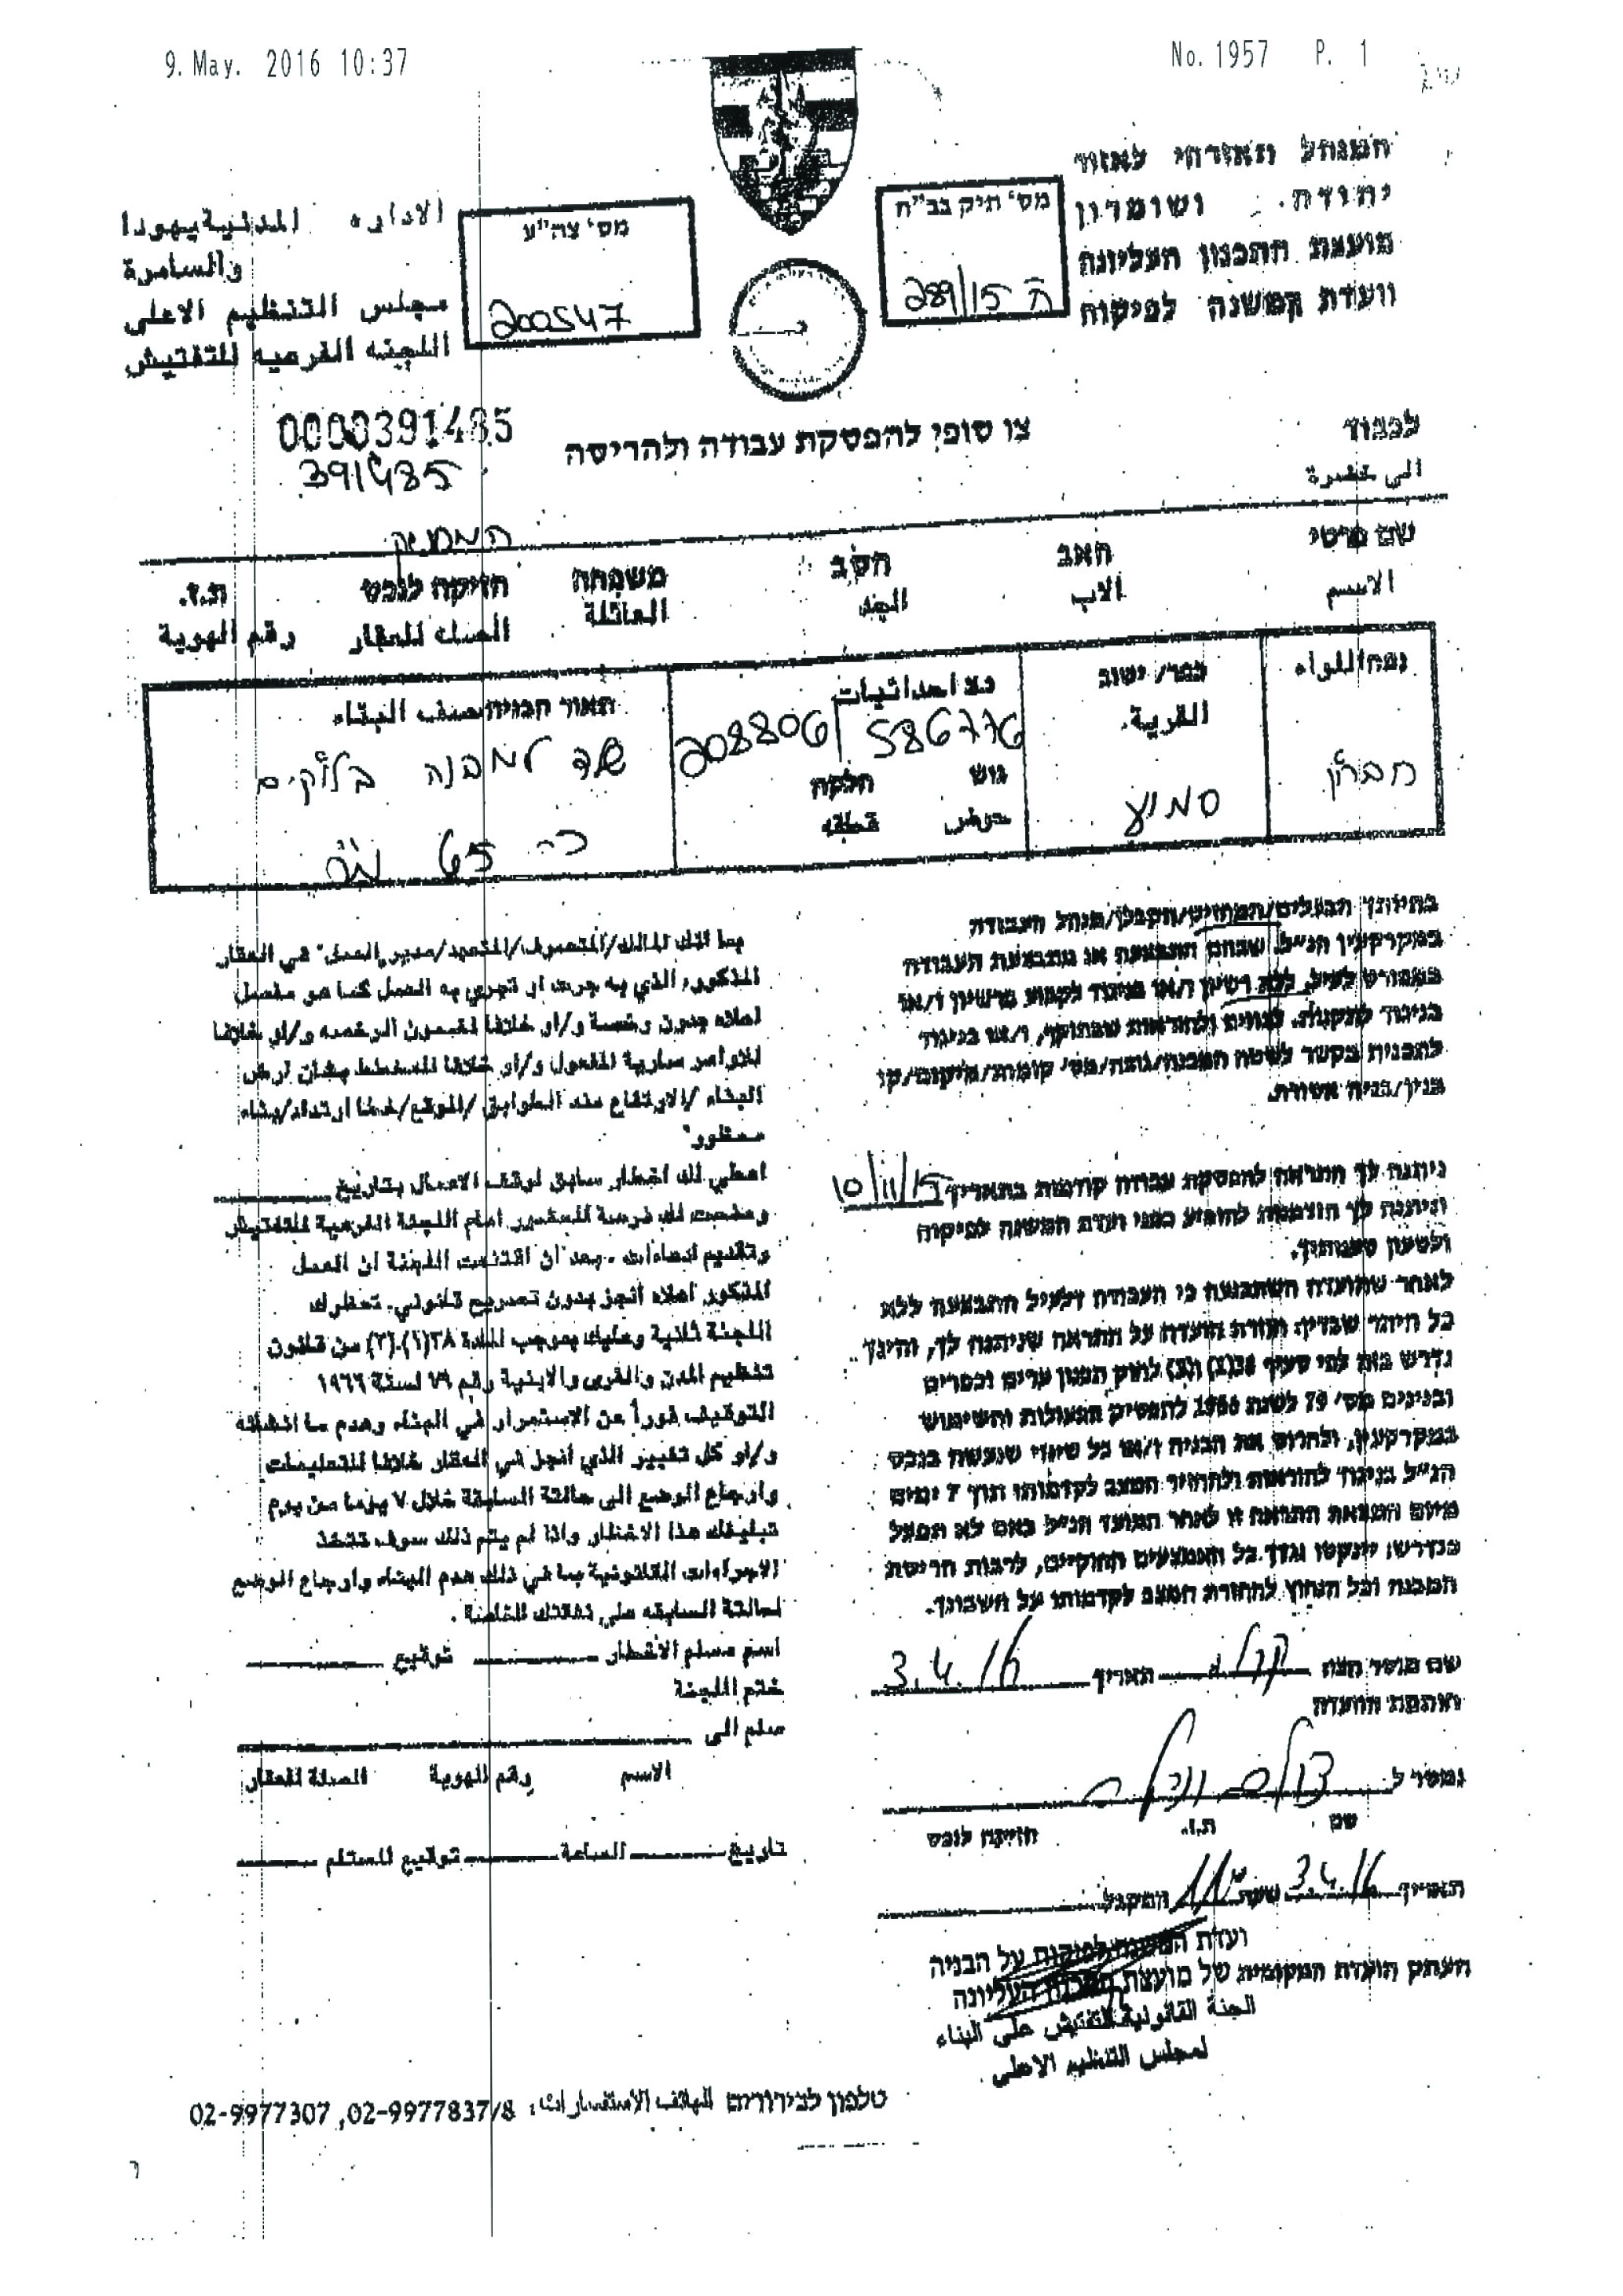 9. May. 2016 10:37
No. 1957 P. 1
המנהל האזרחי לאזור
יהודה ושומרון
מועצת התכנון העליונה
וועדת המשנה לפיקוח
מס' תיק בב"ח
ה 289/15
מס' צה"ע
200547
الاداره المدنية يهودا
والسامرة
مجلس التنظيم الاعلى
اللجنه الفرعيه للتفتيش
0000391485
391485
צו סופי להפסקת עבודה ולהריסה
לכבוד
الى حضرة
המחזיק
שם פרטי האב הסב משפחה הזיקה לנכס ת.ז.
الاسم الاب الجد العائلة الصلة للعقار رقم الهوية
נפה اللواء
חברון
כפר/ ישוב
القرية
סמוע
נצ احداثيات
208806/586776
גוש חלקה
حوض قطعه
תאור הבניה وصف البناء
שלד למבנה בלוקים
כ- 65 מ"ר
בהיותך הבעלים/המחזיק/הקבלן/מנהל העבודה
במקרקעין הנ"ל, שבהם התבצעה או מתבצעת העבודה
כמפורט לעיל, ללא רשיון ו/או בניגוד לקבוע ברשיון ו/או
בניגוד לתקנות, לצווים ולהוראות שבתוקף, ו/או בניגוד
לתכנית בקשר לשטח המבנה/גובה/מס' קומות/מיקום/קו
בנין/בניה אסורה.
ניתנה לך התראה להפסקת עבודה קודמת בתאריך 10/11/15
וניתנה לך הזדמנות להופיע בפני ועדת המשנה לפיקוח
ולטעון טענותיך.
לאחר שהועדה השתכנעה כי העבודה דלעיל התבצעה ללא
כל היתר שבדין, חוזרת הועדה על התראה שניתנה לך, והינך
נדרש בזה לפי סעיף 38(1) ו(3) לחוק תכנון ערים וכפרים
ובנינים מס' 79 לשנת 1966 להפסיק הפעולות והשימוש
במקרקעין, ולהרוס את הבניה ו/או כל שינוי שנעשה בנכס
הנ"ל בניגוד להוראות ולהחזיר המצב לקדמותו תוך 7 ימים
מיום המצאת התראה זו לאחר המועד הנ"ל באם לא תפעל
כנדרש, ינקטו נגדך כל האמצעים החוקיים, לרבות הריסת
המבנה וכל הנחוץ להחזרת המצב לקדמותו על חשבונך.
שם מוסר הצו תאריך 3.4.16
חותמת הועדה
נמסר ל
שם ת.ז. הזיקה לנכס
תאריך 3.4.16 שעה המקבל
بما انك المالك/المتصرف/المتعهد/مدير العمل في العقار
المذكور، الذي به جرت او تجري به العمل كما هو مفصل
اعلاه بدون رخصة و/او خلافا لمضمون الرخصه و/او خلافا
للاوامر سارية المفعول و/او خلافا للمخطط بشان ارض
البناء /الارتفاع عدد الطوابق /الموقع/خط ارتداد/بناء
محظور
اعطي لك اخطار سابق لوقف الاعمال بتاريخ
ومنحت لك فرصة للحضور امام اللجنة الفرعية للتفتيش
وتقديم ادعاءات . بعد ان اقتنعت اللجنة ان العمل
المذكور اعلاه أنجز بدون تصريح قانوني. تخطرك
اللجنة ثانية وعليك بموجب المادة ٣٨(١).(٣) من قانون
تنظيم المدن والقرى والابنية رقم ٧٩ لسنة ١٩٦٦
التوقيف فوراً عن الاستمرار في البناء وهدم ما انشأته
و/او كل تغيير الذي أنجز في العقار خلافا للتعليمات
وارجاع الوضع الى حالتة السابقة خلال ٧ يوما من يوم
تبليغك هذا الاخطار واذا لم يتم ذلك سوف تتخذ
الاجراءات القانونية بما في ذلك هدم البناء وارجاع الوضع
لحالتة السابقه على نفقتك الخاصة .
اسم مسلم الاخطار توقيع
ختم اللجنة
سلم الى
الاسم رقم الهوية الصلة للعقار
تاريخ الساعة توقيع المستلم
ועדת המשנה לפיקוח על הבניה
העתק הועדה המקומית של מועצת התכנון העליונה
الجنة القانونية للتفتيش على البناء
لمجلس التنظيم الاعلى
טלפון לבירורים الهاتف الاستفسارات: 02-9977837/8 ,02-9977307